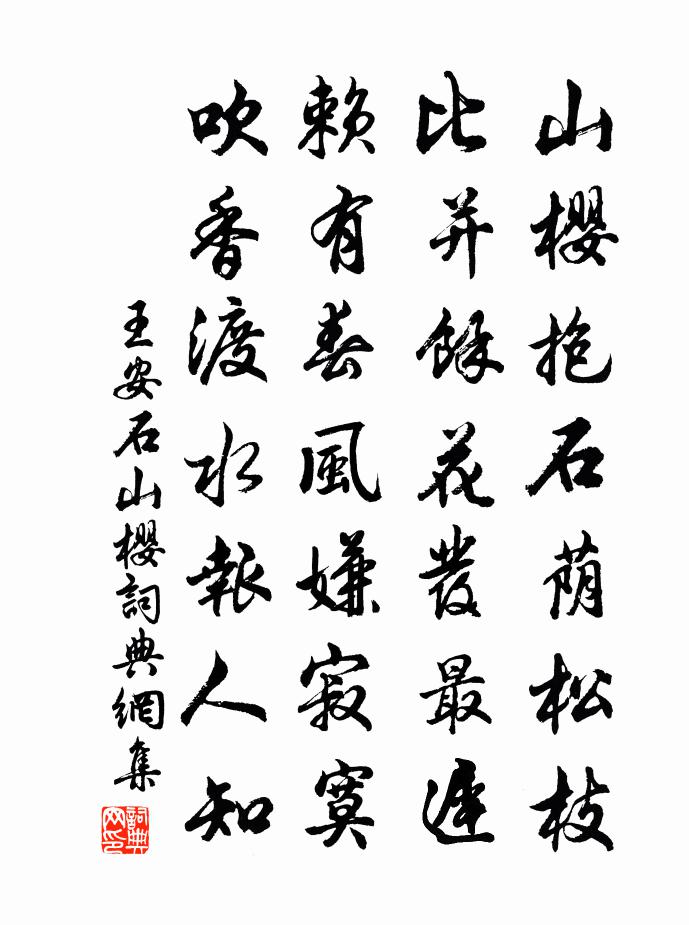 山櫻抱石荫松枝
比并餘花發最遲
賴有春風嫌寂寞
吹香渡水報人知
王安石山櫻詞典網集
詞典网印